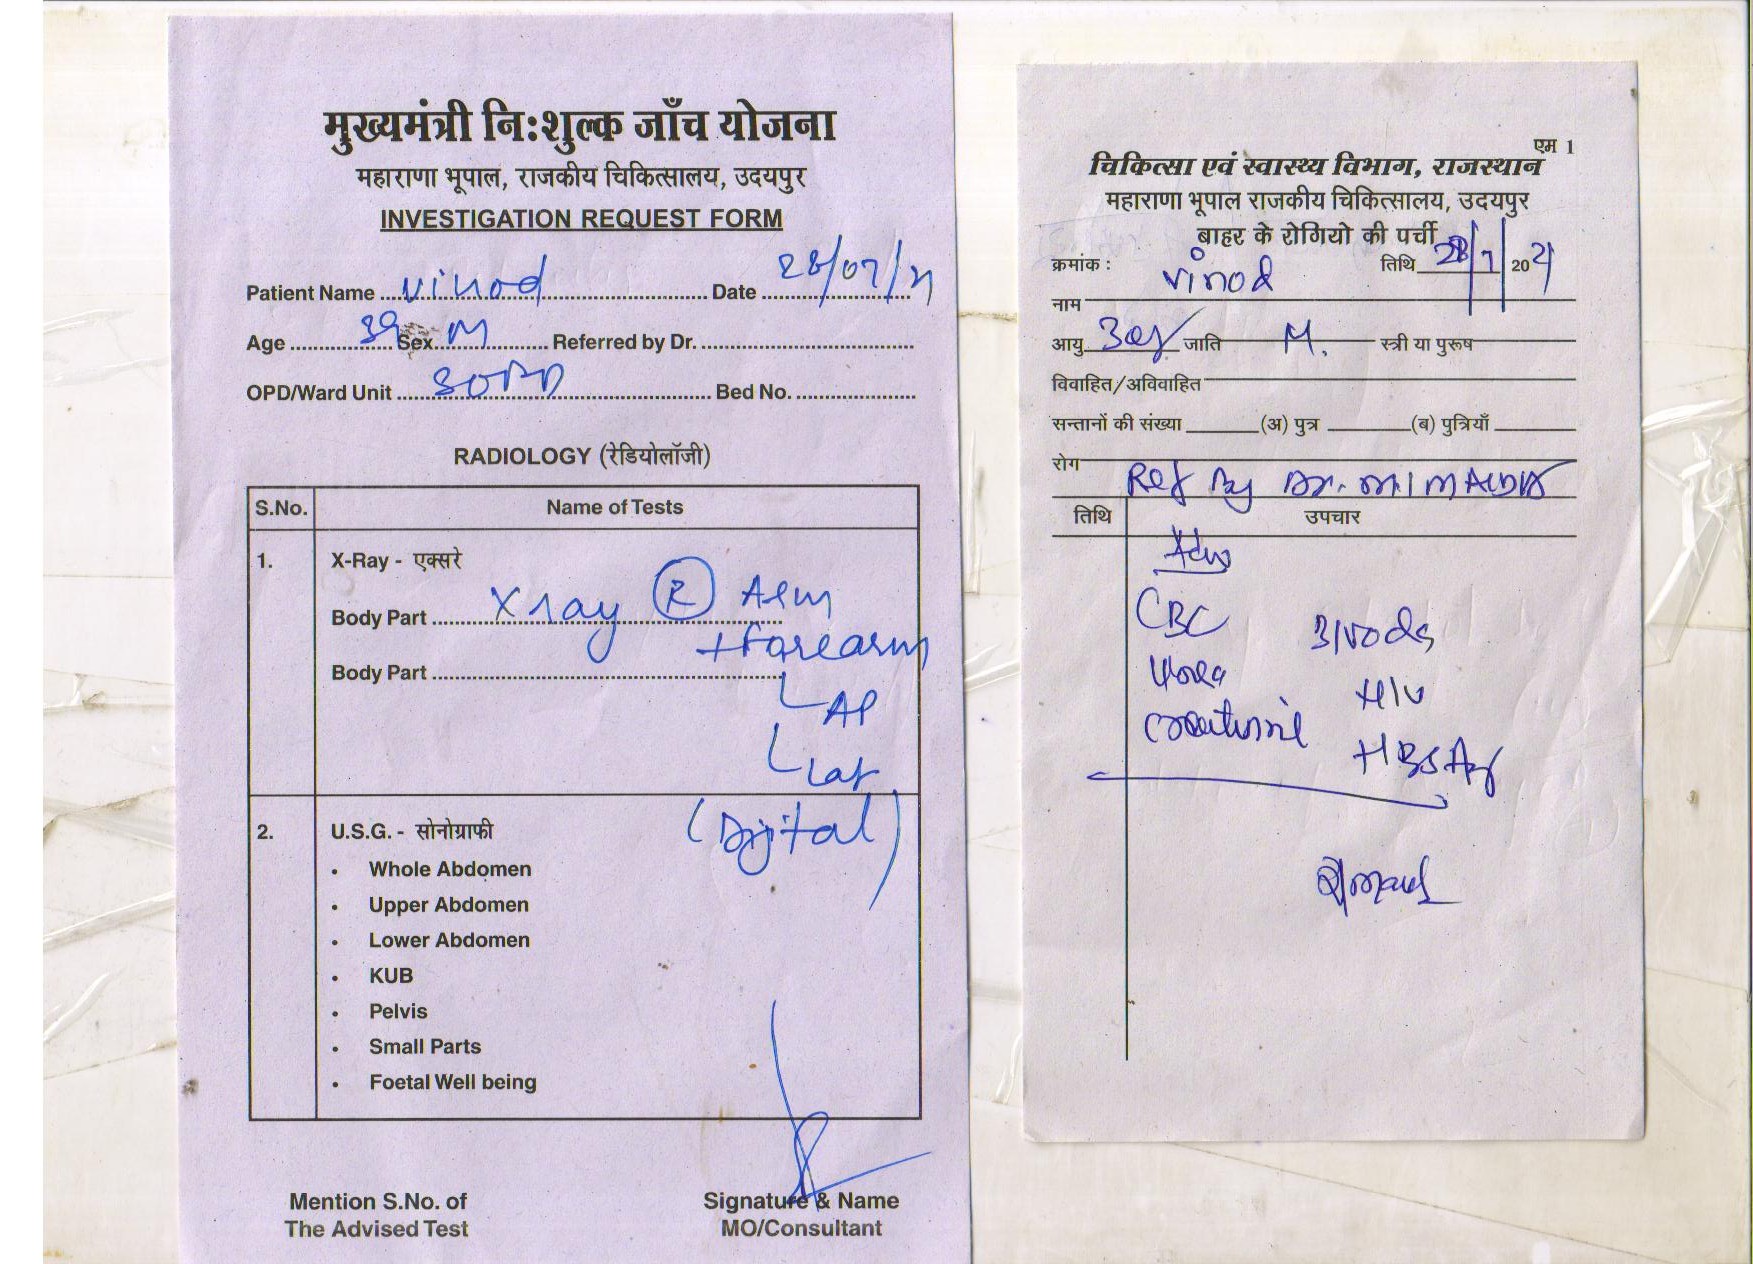 मुख्यमंत्री नि:शुल्क जाँच योजना
महाराणा भूपाल, राजकीय चिकित्सालय, उदयपुर
INVESTIGATION REQUEST FORM
Patient Name vinod Date 28/07/21
Age 39 Sex M Referred by Dr.
OPD/Ward Unit SOPD Bed No.
RADIOLOGY (रेडियोलॉजी)
S.No. Name of Tests
1. X-Ray - एक्सरे
Body Part X ray R Arm
+ forearm
Body Part
AP
Lat
(Digital)
2. U.S.G. - सोनोग्राफी
• Whole Abdomen
• Upper Abdomen
• Lower Abdomen
• KUB
• Pelvis
• Small Parts
• Foetal Well being
Mention S.No. of
The Advised Test
Signature & Name
MO/Consultant
एम 1
चिकित्सा एवं स्वास्थ्य विभाग, राजस्थान
महाराणा भूपाल राजकीय चिकित्सालय, उदयपुर
बाहर के रोगियो की पर्ची
क्रमांक : तिथि 28/7/2021
नाम vinod
आयु जाति M. स्त्री या पुरूष
विवाहित/अविवाहित
सन्तानों की संख्या (अ) पुत्र (ब) पुत्रियाँ
रोग
Ref By Dr.
तिथि उपचार
Adv
CBC
Urea HIV
Creatinine HBSAg